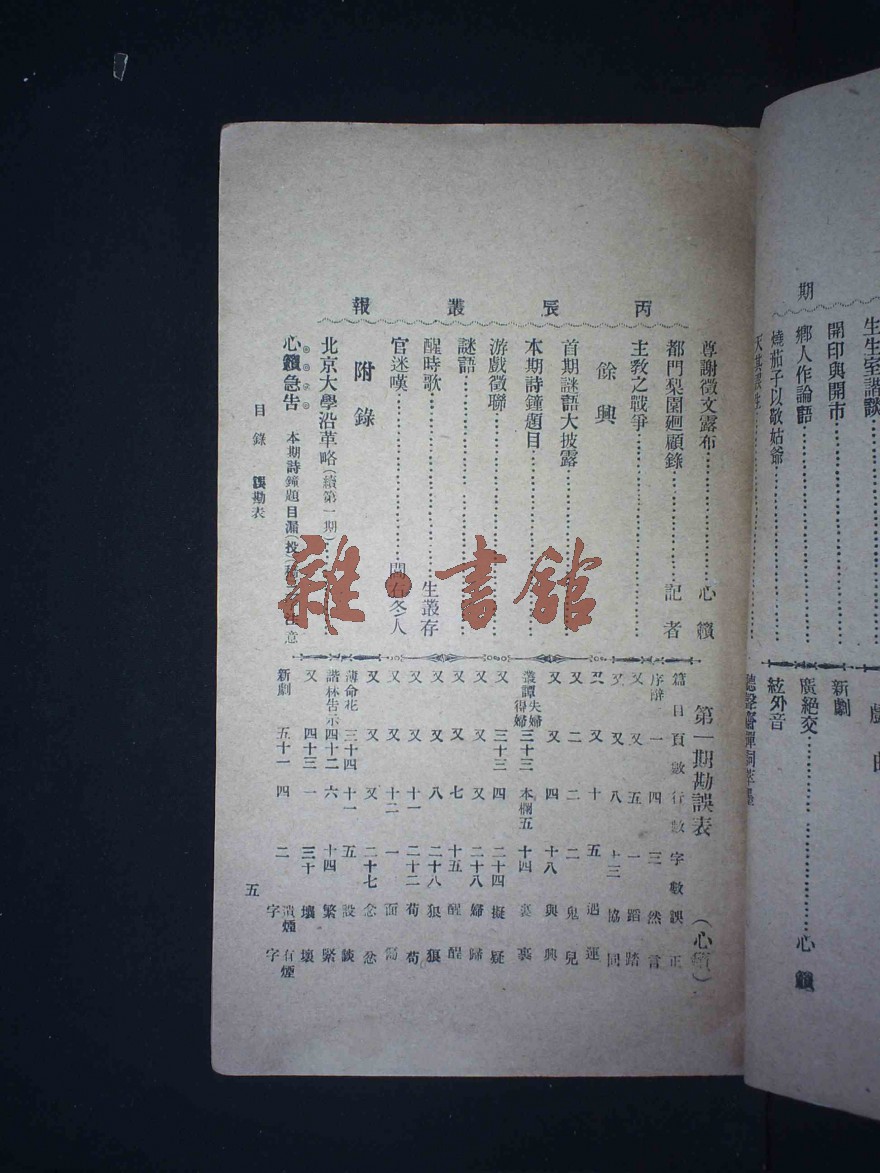 期
生生室諧談
開印與開市
鄉人作論語
燒茄子以敬姑爺
新劇
廣絕交 心籟
絃外音
丙辰叢報
尊謝徵文露布 心籟
都門梨園廻顧錄 記者
主敎之戰爭
餘興
首期謎語大披露
本期詩鐘題目
游戲徵聯
謎語
醒時歌 生叢存
官迷嘆 問石冬人
附錄
北京大學沿革略(續第一期)
心籟急告 本期詩鐘題目漏(投)稿 注意
第一期勘誤表 (心籟)
篇目 頁數 行數 字數 誤 正
序辭 一 四 三 然 言
又 又 五 一 蹈 踏
又 又 八 十三 協 同
又 又 十 五 遇 運
又 二 二 二 鬼 兒
又 又 四 十八 與 興
叢譚夫婦得婦 三十三 本欄五 十四 裏 裹
又 三十三 四 二十四 擬 疑
又 又 又 二十八 婦 歸
又 又 七 十五 醒 醒
又 又 八 二十八 狠 狼
又 又 十一 二十二 荀 苟
又 又 十二 一 面
又 又 又 二十七 念 忿
薄命花 三十四 十一 五 設
諧林告示 四十二 六 十四 繁 緊
又 四十三 一 三十 壤 壞
新劇 五十一 四 二 煙字 有煙字
目錄 誤勘表
五
雜·書館